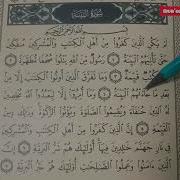 سُورَةُ الْبَيِّنَةِ
بِسْمِ اللهِ الرَّحْمٰنِ الرَّحِيمِ
لَمْ يَكُنِ الَّذِينَ كَفَرُوا مِنْ أَهْلِ الْكِتَٰبِ وَالْمُشْرِكِينَ مُنْفَكِّينَ
حَتَّىٰ تَأْتِيَهُمُ الْبَيِّنَةُ رَسُولٌ مِنَ اللهِ يَتْلُوا صُحُفًا مُطَهَّرَةً
فِيهَا كُتُبٌ قَيِّمَةٌ وَمَا تَفَرَّقَ الَّذِينَ أُوتُوا الْكِتَٰبَ إِلَّا مِنْ
بَعْدِ مَا جَاءَتْهُمُ الْبَيِّنَةُ وَمَا أُمِرُوا إِلَّا لِيَعْبُدُوا
لَهُ الدِّينَ حُنَفَاءَ وَيُقِيمُوا الصَّلَوٰةَ وَيُؤْتُوا الزَّكَوٰةَ وَذَٰلِكَ دِينُ
الْقَيِّمَةِ إِنَّ الَّذِينَ كَفَرُوا مِنْ أَهْلِ الْكِتَٰبِ وَالْمُشْرِكِينَ
فِي نَارِ جَهَنَّمَ خَٰلِدِينَ فِيهَا أُولَٰئِكَ هُمْ شَرُّ الْبَرِيَّةِ إِنَّ
الَّذِينَ اٰمَنُوا وَعَمِلُوا الصَّٰلِحَٰتِ أُولَٰئِكَ هُمْ خَيْرُ الْبَرِيَّةِ